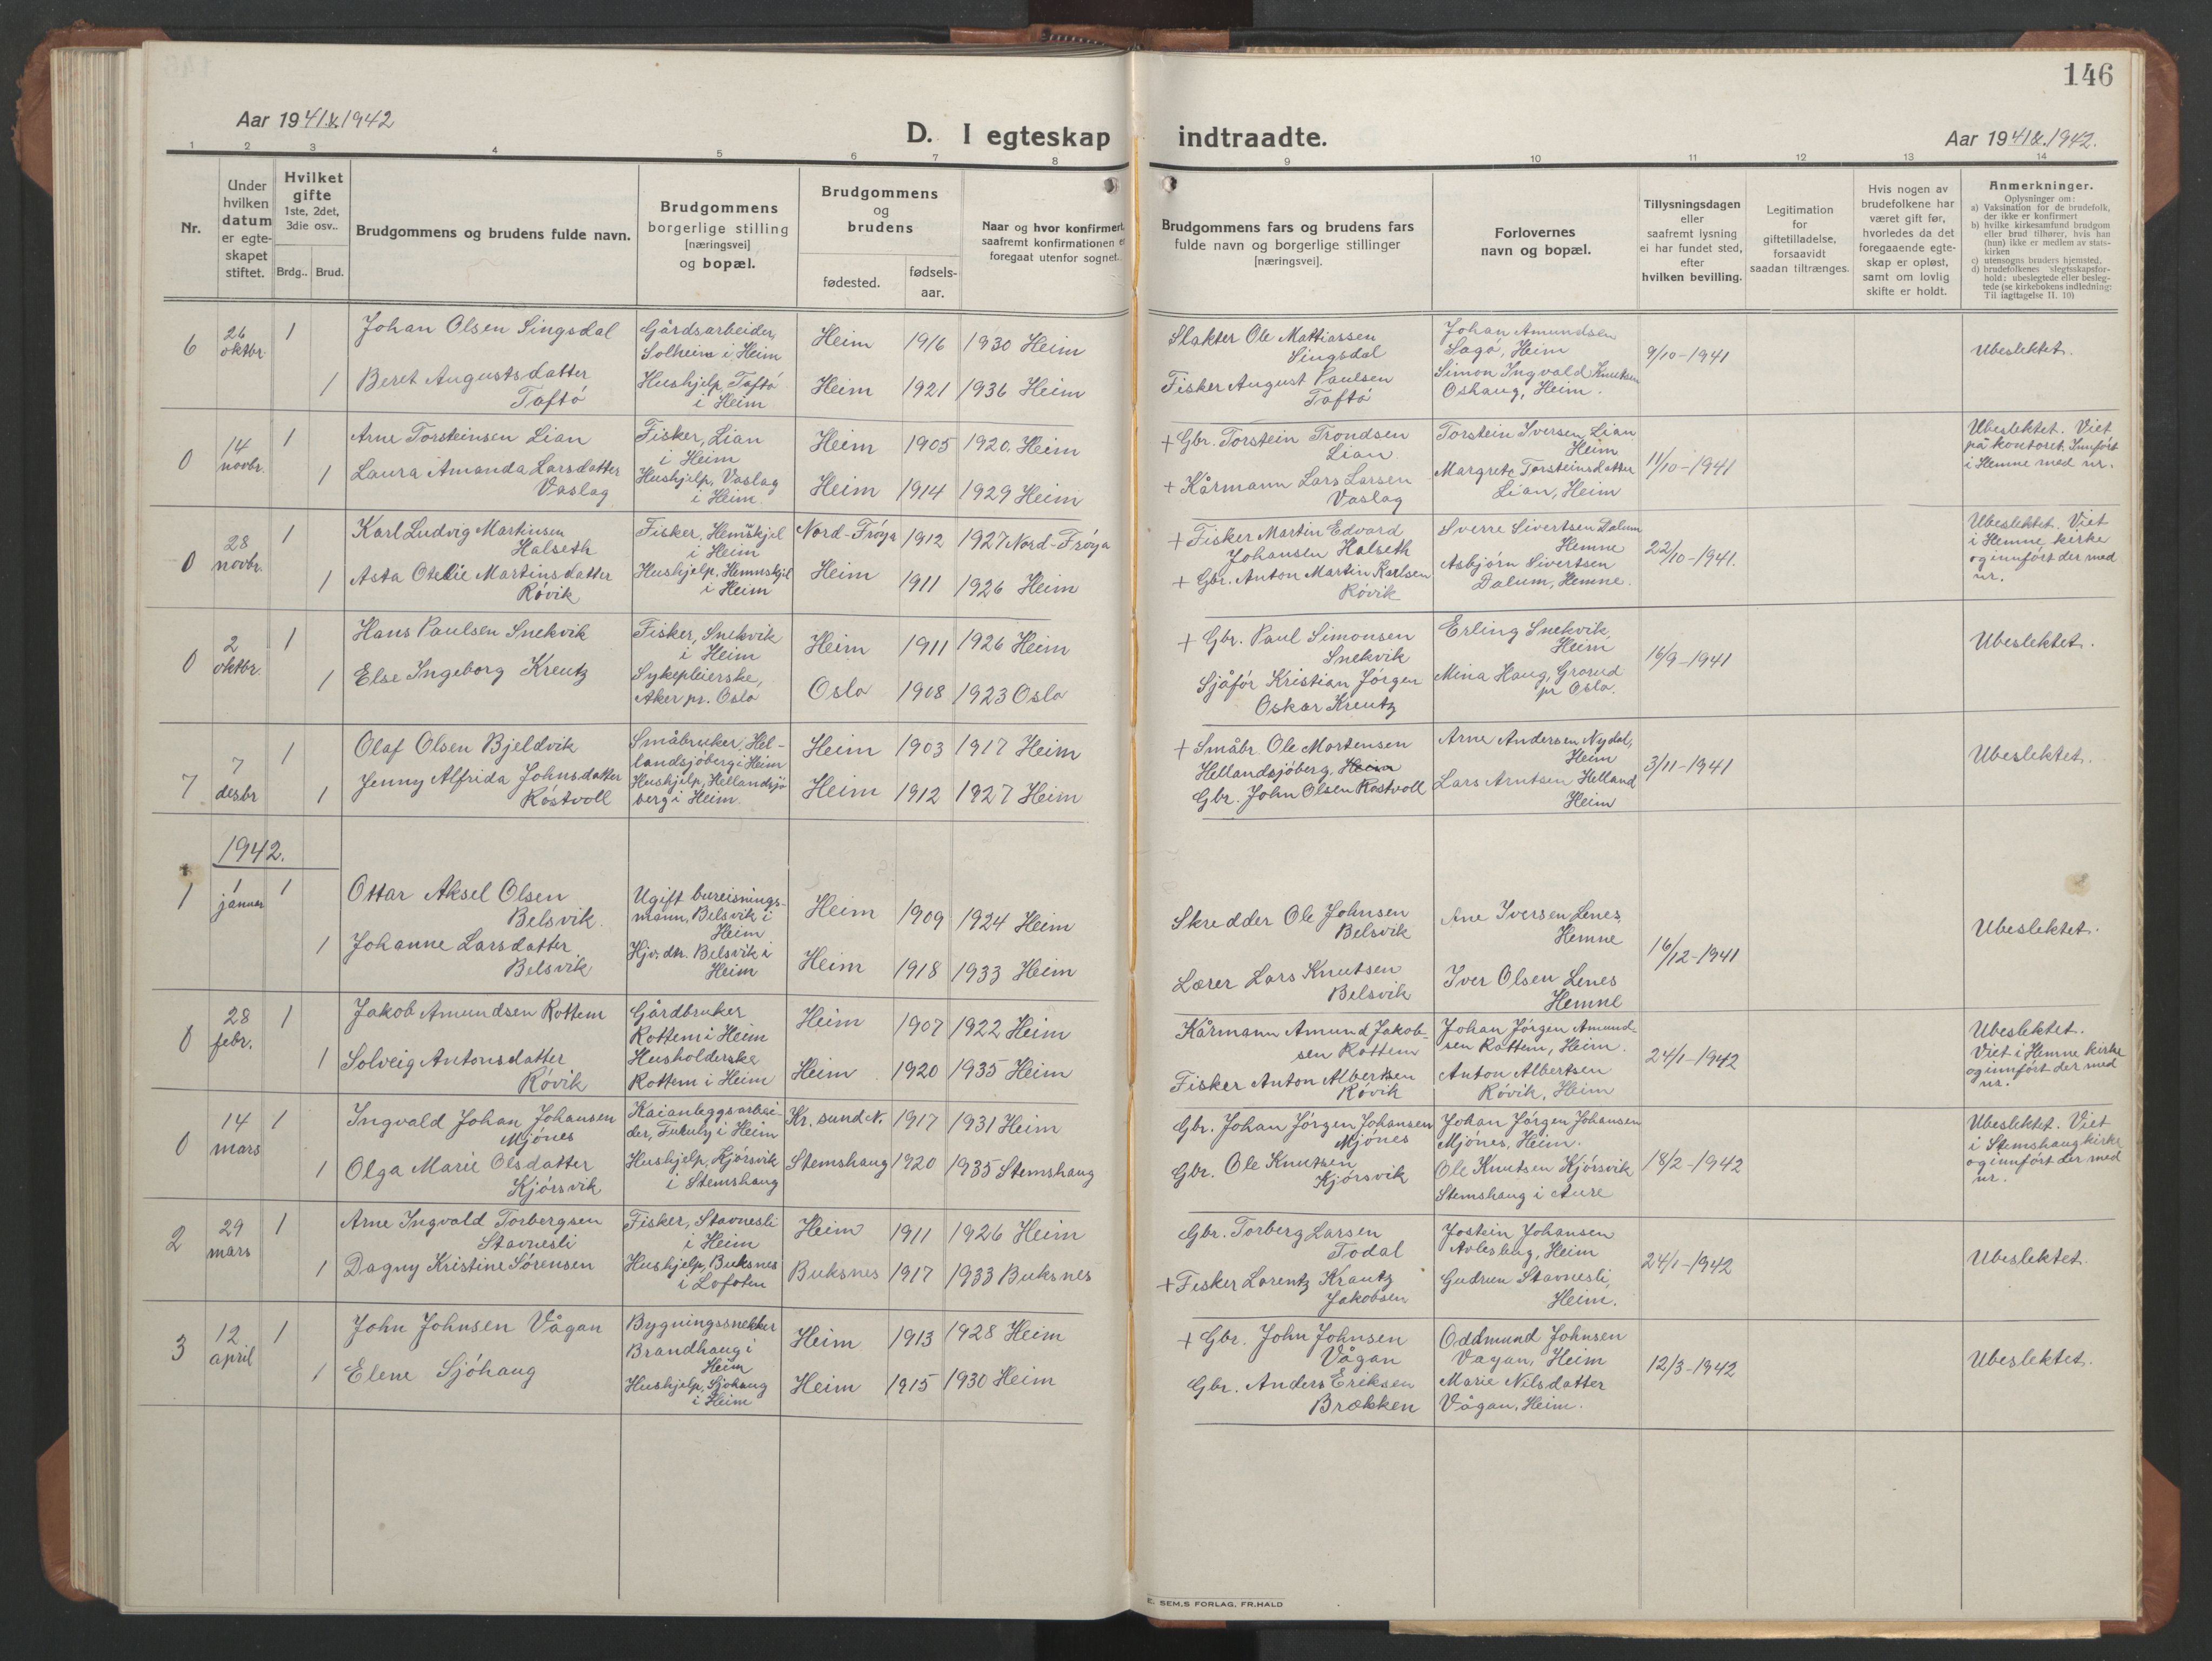 146
Aar 1941 & 1942
D. I egteskap indtraadte.
Aar 1941 & 1942.
1 2 3 4 5 6 7 8 9 10 11 12 13 14
Nr.
Under hvilken datum er egteskapet stiftet.
Hvilket gifte 1ste, 2det, 3die osv..
Brdg.. Brud.
Brudgommens og brudens fulde navn.
Brudgommens borgerlige stilling [næringsvei] og bopæl.
Brudgommens og brudens
fødested.
fødsels-aar.
Naar og hvor konfirmert, saafremt konfirmationen er foregaat utenfor sognet.
Brudgommens fars og brudens fars fulde navn og borgerlige stillinger [næringsvei].
Forlovernes navn og bopæl.
Tillysningsdagen eller saafremt lysning ei har fundet sted, efter hvilken bevilling.
Legitimation for giftetilladelse, forsaavidt saadan tiltrænges.
Hvis nogen av brudefolkene har været gift før, hvorledes da det foregaaende egteskap er opløst, samt om lovlig skifte er holdt.
Anmerkninger.
Oplysninger om:
a) Vaksination for de brudefolk, der ikke er konfirmert
b) hvilke kirkesamfund brudgom eller brud tilhører, hvis han (hun) ikke er medlem av statskirken
c) utensogns bruders hjemsted.
d) brudefolkenes slegtsskapsforhold: ubeslegtede eller beslegtede (se kirkebokens indledning: Til iagttagelse II. 10)
6 26 oktbr. 1 Johan Olsen Singsdal Gårdsarbeider, Solheim i Heim Heim 1916 1930 Heim Slakter Ole Mattiassen Singsdal Johan Amundsen Sagø, Heim 9/10-1941 Ubeslektet.
1 Beret Augustsdatter Taftø Hushjelp, Taftø i Heim Heim 1921 1936 Heim Fisker August Paulsen Taftø Simon Ingvald Knutsen Oshaug, Heim.
0 14 novbr. 1 Arne Torsteinsen Lian Fisker, Lian i Heim Heim 1905 1920. Heim + Gbr. Torstein Trondsen Lian Torstein Iversen Lian Heim 11/10-1941 Ubeslektet. Viet på kontoret. Innført i Hemne med nr.
1 Laura Amanda Larsdatter Vaslag Hushjelp, Vaslag i Heim Heim 1914 1929 Heim + Kårmann Lars Larsen Vaslag Margrete Torsteinsdatter Lian, Heim
0 28 novbr. 1 Karl Ludvig Martinsen Halseth Fisker, Hemnskjel i Heim Nord-Frøya 1912 1927 Nord-Frøya + Fisker Martin Edvard Johansen Halseth Sverre Sivertsen Dalum Hemne 22/10-1941. Ubeslektet. Viet i Hemne kirke og innført der med nr.
1 Asta Otelie Martinsdatter Røvik Hushjelp, Hemnskjel i Heim Heim 1911 1926 Heim + Gbr. Anton Martin Karlsen Røvik Asbjørn Sivertsen Dalum, Hemne.
0 2 oktbr. 1 Hans Paulsen Snekvik Fisker, Snekvik i Heim Heim 1911 1926 Heim + Gbr. Paul Simonsen Snekvik Erling Snekvik, Heim 16/9-1941 Ubeslektet.
1 Else Ingeborg Kreutz Sykepleierske, Aker pr. Oslo Oslo 1908 1923 Oslo Sjåfør Kristian Jørgen Oskar Kreutz Mina Haug, Grorud pr Oslo.
7 7 desbr 1 Olaf Olsen Bjeldvik Småbruker, Hellandsjøberg i Heim Heim 1903 1917 Heim + Småbr. Ole Mortensen Hellandsjøberg, Heim Arne Andersen Nydal, Heim 3/11-1941 Ubeslektet.
1 Jenny Alfrida Johnsdatter Røstvoll Hushjelp, Hellandsjøberg i Heim Heim 1912 1927 Heim Gbr. John Olsen Røstvoll Lars Arntsen Helland Heim
1942.
1 1 januar 1 Ottar Aksel Olsen Belsvik. Ugift bureisningsmann, Belsvik i Heim Heim 1909 1924 Heim Skredder Ole Johnsen Belsvik Ane Iversen Lenes, Hemne 16/12-1941 Ubeslektet.
1 Johanne Larsdatter Belsvik Hjv. dtr. Belsvik i Heim Heim 1918 1933 Heim Lærer Lars Knutsen Belsvik Iver Olsen Lenes Hemne
0 28 febr. 1 Jakob Amundsen Rottem Gårdbruker Rottem i Heim Heim 1907 1922 Heim Kårmann Amund Jakobsen Rottem Johan Jørgen Amundsen Rottem, Heim. 24/1-1942 Ubeslektet. Viet i Hemne kirke og innført der med nr.
1 Solveig Antonsdatter Røvik Husholderske Rottem i Heim Heim 1920 1935 Heim Fisker Anton Albertsen Røvik Anton Albertsen Røvik, Heim
0 14 mars 1 Ingvald Johan Johansen Mjønes Kaianleggsarbeider, i Heim Kr. sund N. 1917 1931 Heim Gbr. Johan Jørgen Johansen Mjønes Johan Jørgen Johansen Mjønes, Heim. 18/2-1942 Ubeslektet. Viet i Stemshaug kirke og innført der med nr.
1 Olga Marie Olsdatter Kjørsvik Hushjelp, Kjørsvik i Stemshaug Stemshaug 1920 1935 Stemshaug Gbr. Ole Knutsen Kjørsvik Ole Knutsen Kjørsvik Stemshaug i Aure
2 29 mars 1 Arne Ingvald Torbergsen Stavnesli Fisker, Stavnesli i Heim Heim 1911 1926 Heim Gbr. Torberg Larsen Todal Jostein Johansen Heim 24/1-1942 Ubeslektet.
1 Dagny Kristine Sørensen Hushjelp, Buksnes i Lofoten Buksnes 1917 1933 Buksnes + Fisker Lorentz Krantz Jakobsen Gudrun Stavnesli, Heim.
3 12 april 1 John Johnsen Vågan Bygningssnekker Brandhaug i Heim Heim 1913 1928 Heim + Gbr. John Johnsen Vågan Oddmund Johnsen Vågan, Heim 12/3-1942 Ubeslektet.
1 Elene Sjøhaug Hushjelp, Sjøhaug i Heim Heim 1915 1930 Heim Gbr. Anders Eriksen Brækken Marie Nilsdatter Vågan, Heim.
E. SEM.S FORLAG, FR.HALD